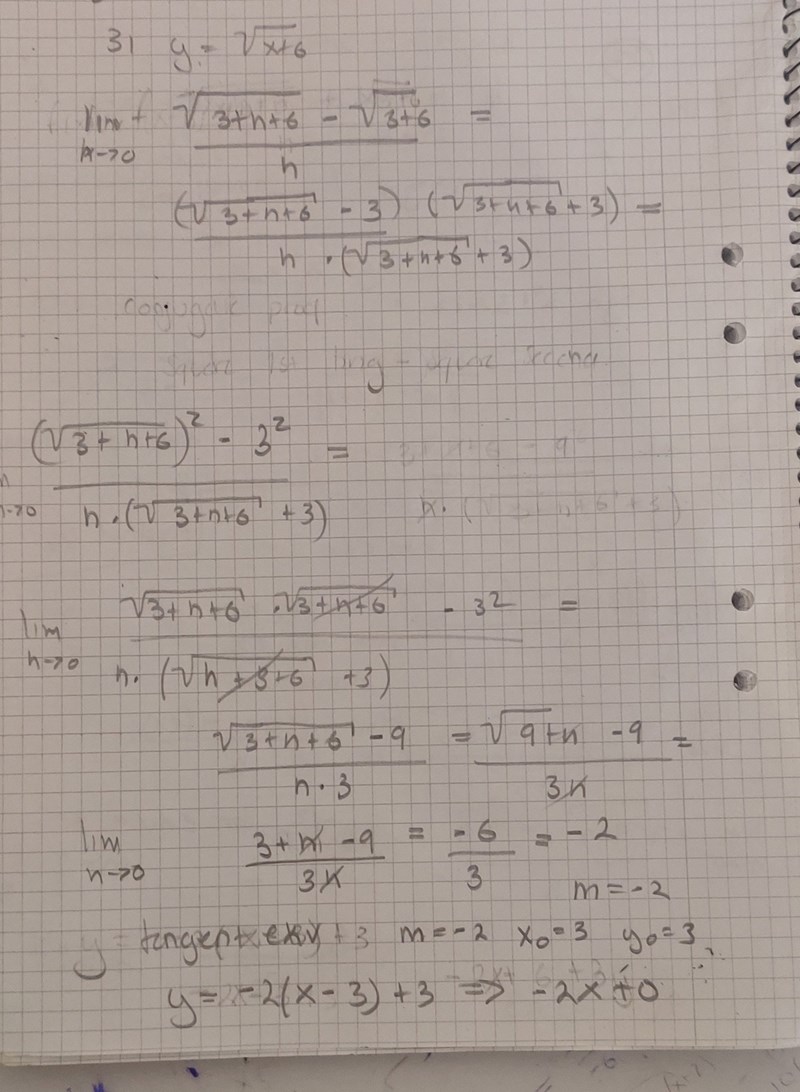 31 y = √x+6
lim h→0 √3+h+6 - √3+6 / h =
(√3+h+6 - 3) (√3+h+6 + 3) / h · (√3+h+6 + 3) =
(√3+h+6)² - 3² / h · (√3+h+6 + 3) =
lim h→0 √3+h+6 · √3+h+6 - 3² / h · (√h+3+6 + 3) =
√3+h+6 - 9 / h · 3 = √9+h - 9 / 3h =
lim h→0 3+h - 9 / 3h = -6 / 3 = -2
m = -2
y = m = -2 x₀ = 3 y₀ = 3
y = -2(x - 3) + 3 => -2x + 0